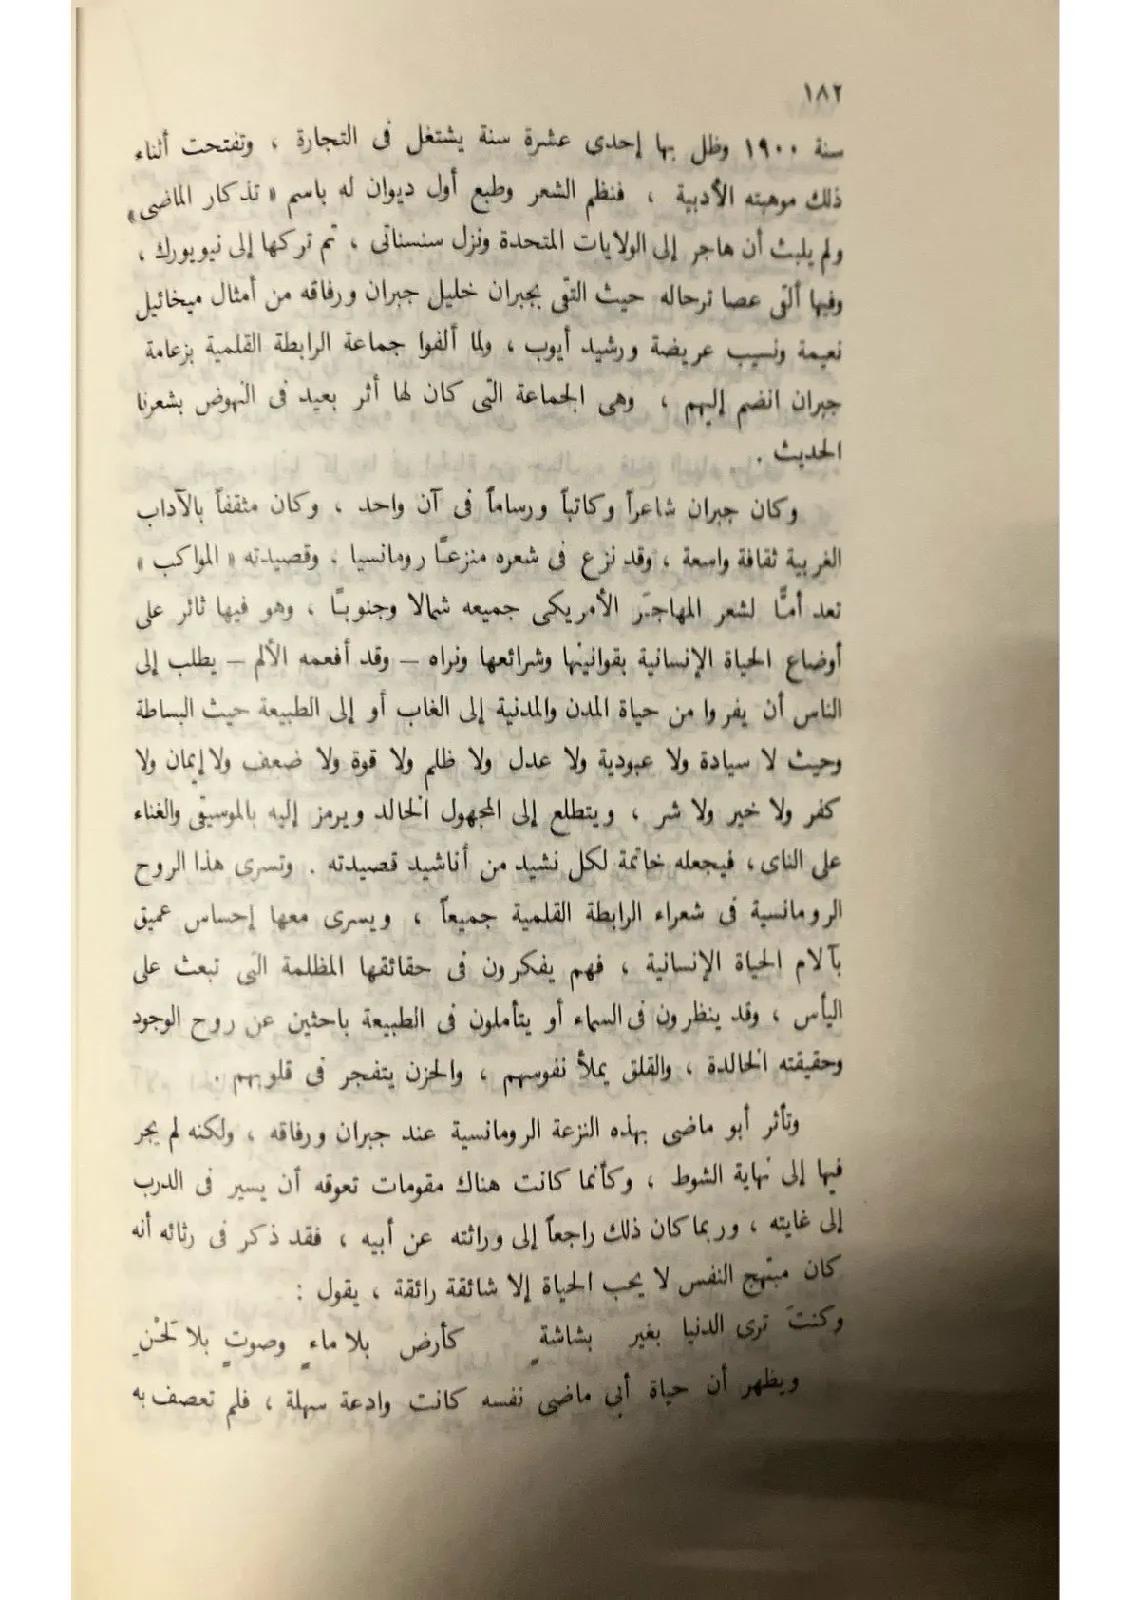 ١٨٢
سنة ١٩٠٠ وظل بها إحدى عشرة سنة يشتغل فى التجارة ، وتفتحت أثناء
ذلك موهبته الأدبية ، فنظم الشعر وطبع أول ديوان له باسم « تذكار الماضى »
ولم يلبث أن هاجر إلى الولايات المتحدة ونزل سنسناتى ، ثم تركها إلى نيويورك ،
وفيها ألقى عصا ترحاله حيث التقى بجبران خليل جبران ورفاقه من أمثال ميخائيل
نعيمة ونسيب عريضة ورشيد أيوب ، ولما ألفوا جماعة الرابطة القلمية بزعامة
جبران انضم إليهم ، وهى الجماعة التى كان لها أثر بعيد فى النهوض بشعرنا
الحديث .
وكان جبران شاعراً وكاتباً ورساماً فى آن واحد ، وكان مثقفاً بالآداب
الغربية ثقافة واسعة ، وقد نزع فى شعره منزعـًا رومانسيا . وقصيدته « المواكب »
تعد أمـًّا لشعر المهاجـَر الأمريكى جميعه شمالا وجنوبـًا ، وهو فيها ثائر على
أوضاع الحياة الإنسانية بقوانينها وشرائعها ونراه – وقد أفعمه الألم – يطلب إلى
الناس أن يفروا من حياة المدن والمدنية إلى الغاب أو إلى الطبيعة حيث البساطة
وحيث لا سيادة ولا عبودية ولا عدل ولا ظلم ولا قوة ولا ضعف ولا إيمان ولا
كفر ولا خير ولا شر ، ويتطلع إلى المجهول الخالد ويرمز إليه بالموسيقى والغناء
على الناى ، فيجعله خاتمة لكل نشيد من أناشيد قصيدته . وتسرى هذا الروح
الرومانسية فى شعراء الرابطة القلمية جميعاً ، ويسرى معها إحساس عميق
بآلام الحياة الإنسانية ، فهم يفكرون فى حقائقها المظلمة التى تبعث على
اليأس ، وقد ينظرون فى السماء أو يتأملون فى الطبيعة باحثين عن روح الوجود
وحقيقته الخالدة ، والقلق يملأ نفوسهم ، والحزن يتفجر فى قلوبهم .
وتأثر أبو ماضى بهذه النزعة الرومانسية عند جبران ورفاقه ، ولكنه لم يجر
فيها إلى نهاية الشوط ، وكأنما كانت هناك مقومات تعوقه أن يسير فى الدرب
إلى غايته ، وربما كان ذلك راجعاً إلى وراثته عن أبيه ، فقد ذكر فى رثائه أنه
كان مبتهج النفس لا يحب الحياة إلا شائقة رائقة ، يقول :
وكنتَ ترى الدنيا بغير بشاشةٍ كأرض بلا ماءٍ وصوتٍ بلا لَحْنِ
ويظهر أن حياة أبى ماضى نفسه كانت وادعة سهلة ، فلم تعصف به